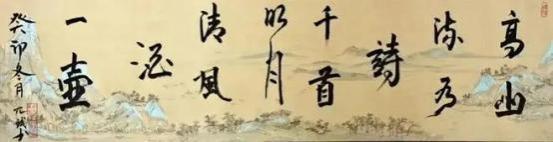 高山
流水
詩
千首
明月
清風
酒
一壺
癸卯冬月